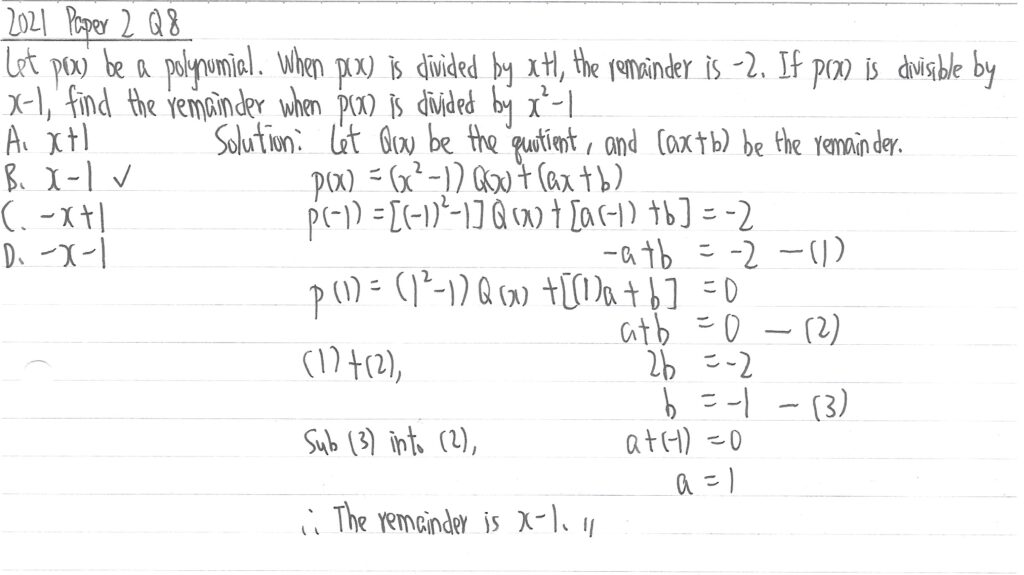 2021 Paper 2 Q8
Let p(x) be a polynomial. When p(x) is divided by x+1, the remainder is -2. If p(x) is divisible by
x-1, find the remainder when p(x) is divided by x²-1
A. x+1
B. x-1 ✓
C. -x+1
D. -x-1
Solution: Let Q(x) be the quotient, and (ax+b) be the remainder.
p(x) = (x²-1) Q(x) + (ax+b)
p(-1) = [(-1)²-1] Q(x) + [a(-1) + b] = -2
-a+b = -2 — (1)
p(1) = (1²-1) Q(x) + [(1)a + b] = 0
a+b = 0 — (2)
(1)+(2), 2b = -2
b = -1 — (3)
Sub (3) into (2), a+(-1) = 0
a = 1
∴ The remainder is x-1. //